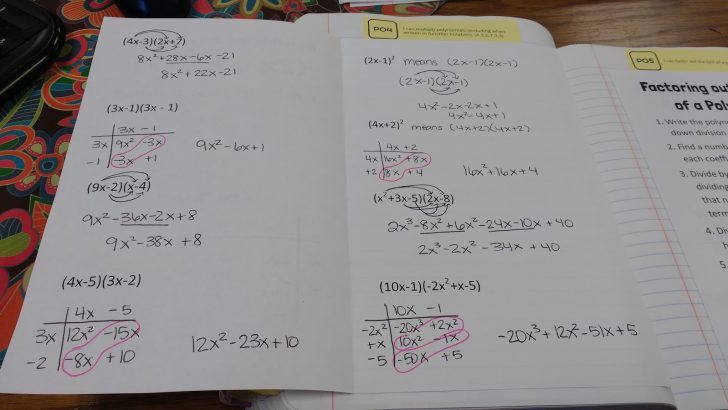 (4x-3)(2x+7)
8x²+28x-6x-21
8x²+22x-21
(3x-1)(3x - 1)
3x - 1
3x 9x² -3x
-1 -3x +1
9x²-6x+1
(9x-2)(x-4)
9x²-36x-2x+8
9x²-38x+8
(4x-5)(3x-2)
4x -5
3x 12x² -15x
-2 -8x +10
12x²-23x+10
PO4
I can multiply polynomials (including when
(2x-1)² means (2x-1)(2x-1)
(2x-1)(2x-1)
4x²-2x-2x+1
4x²-4x+1
(4x+2)² means (4x+2)(4x+2)
4x +2
4x 16x² +8x
+2 8x +4
16x²+16x+4
(x²+3x-5)(2x-8)
2x³-8x²+6x²-24x-10x+40
2x³-2x²-34x+40
(10x-1)(-2x²+x-5)
10x -1
-2x² -20x³ +2x²
+x 10x² -1x
-5 -50x +5
-20x³+12x²-51x+5
PO5
Factoring
of a
1. Write the
down division
2. Find a
each
3. Divide by
dividing
that
4.
5